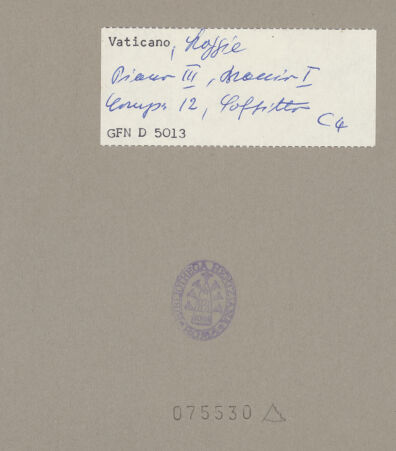 Vaticano, Loggie
Piano III, Braccio I
Comp. 12, Soffitto
C4
GFN D 5013
BIBLIOTHECA HERTZIANA
ROMA
075530